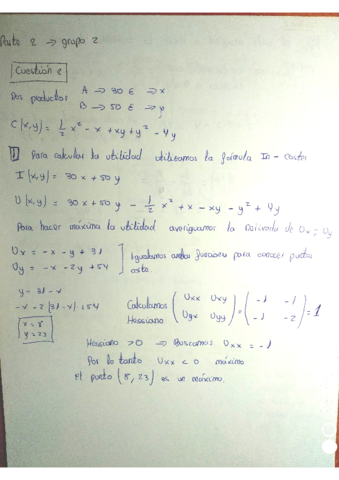 Parte 2 → grupo 2
Cuestión 2
Dos productos A → 30 € → x
B → 50 € → y
C(x,y) = 1/2 x² - x + xy + y² - 4y
1 Para calcular la utilidad utilizamos la fórmula In - costes
I(x,y) = 30x + 50y
U(x,y) = 30x + 50y - 1/2 x² + x - xy - y² + 4y
Para hacer máxima la utilidad averiguamos la Derivada de Ux ; Uy
Ux = -x - y + 31
Uy = -x - 2y + 54
Igualamos ambas funciones para conocer puntos
y = 31 - x
-x - 2(31 - x) + 54
x = 8
y = 23
Calculamos Hessiano ( Uxx Uxy Uyx Uyy ) = ( -1 -1 -1 -2 ) = 1
Hessiano > 0 ⇒ Buscamos Uxx = -1
Por lo tanto Uxx < 0 máximo
El punto (8, 23) es un máximo.